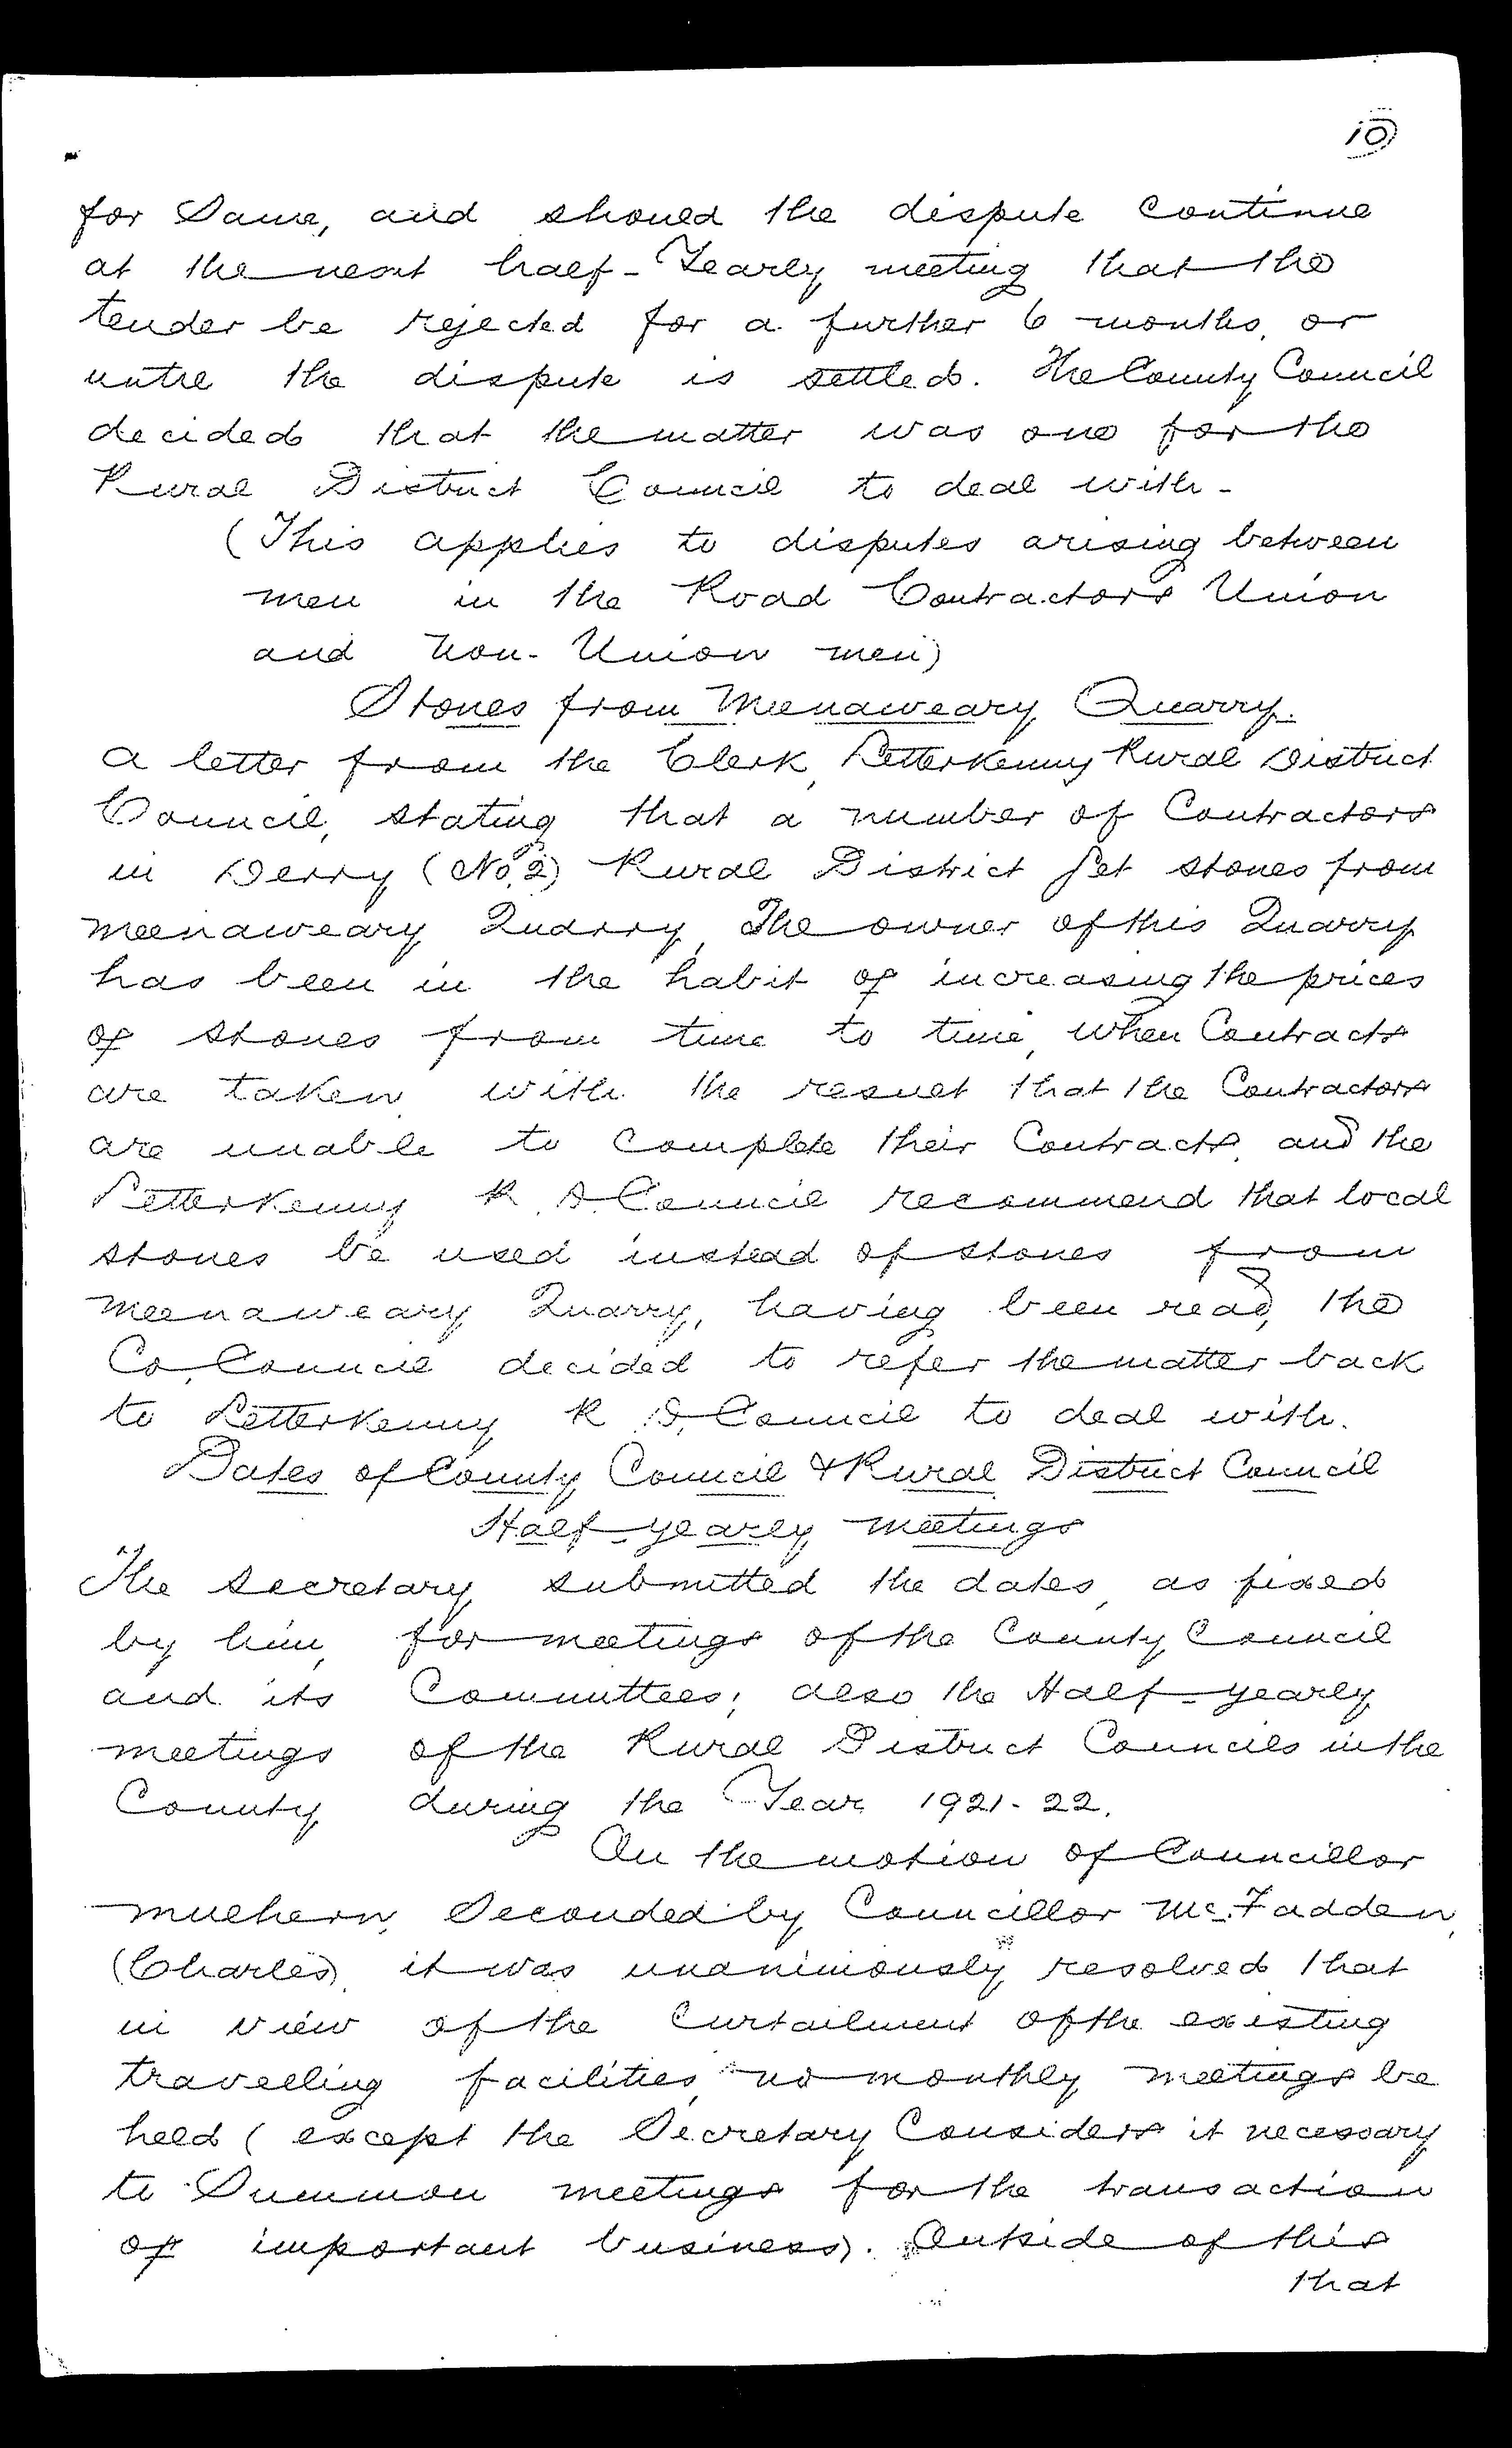 10
for Same, and should the dispute Continue
at the next half-Yearly meeting that the
tender be rejected for a further 6 months, or
until the dispute is settled. The County Council
decided that the matter was one for the
Rural District Council to deal with -
(This applies to disputes arising between
men in the Road Contractors Union
and Non-Union men)
Stones from Meenaweary Quarry.
A letter from the Clerk, Letterkenny Rural District
Council, stating that a number of Contractors
in Derry (No. 2) Rural District get stones from
Meenaweary Quarry, The owner of this Quarry
has been in the habit of increasing the prices
of stones from time to time, when Contracts
are taken with the result that the Contractors
are unable to Complete their Contracts, and the
Letterkenny R. D. Council recommend that local
stones be used instead of stones from
Meenaweary Quarry, having been read, the
Co. Council decided to refer the matter back
to Letterkenny R. D. Council to deal with.
Dates of County Council & Rural District Council
Half-yearly Meetings
The Secretary submitted the dates, as fixed
by him, for meetings of the County Council
and its Committees; also the Half-yearly
meetings of the Rural District Councils in the
County during the Year 1921-22.
On the motion of Councillor
Mulhern, Seconded by Councillor McFadden,
(Charles), it was unanimously resolved that
in view of the Curtailment of the existing
travelling facilities, no monthly meetings be
held (except the Secretary Considers it necessary
to Summon meetings for the transaction
of important business). Outside of this
that